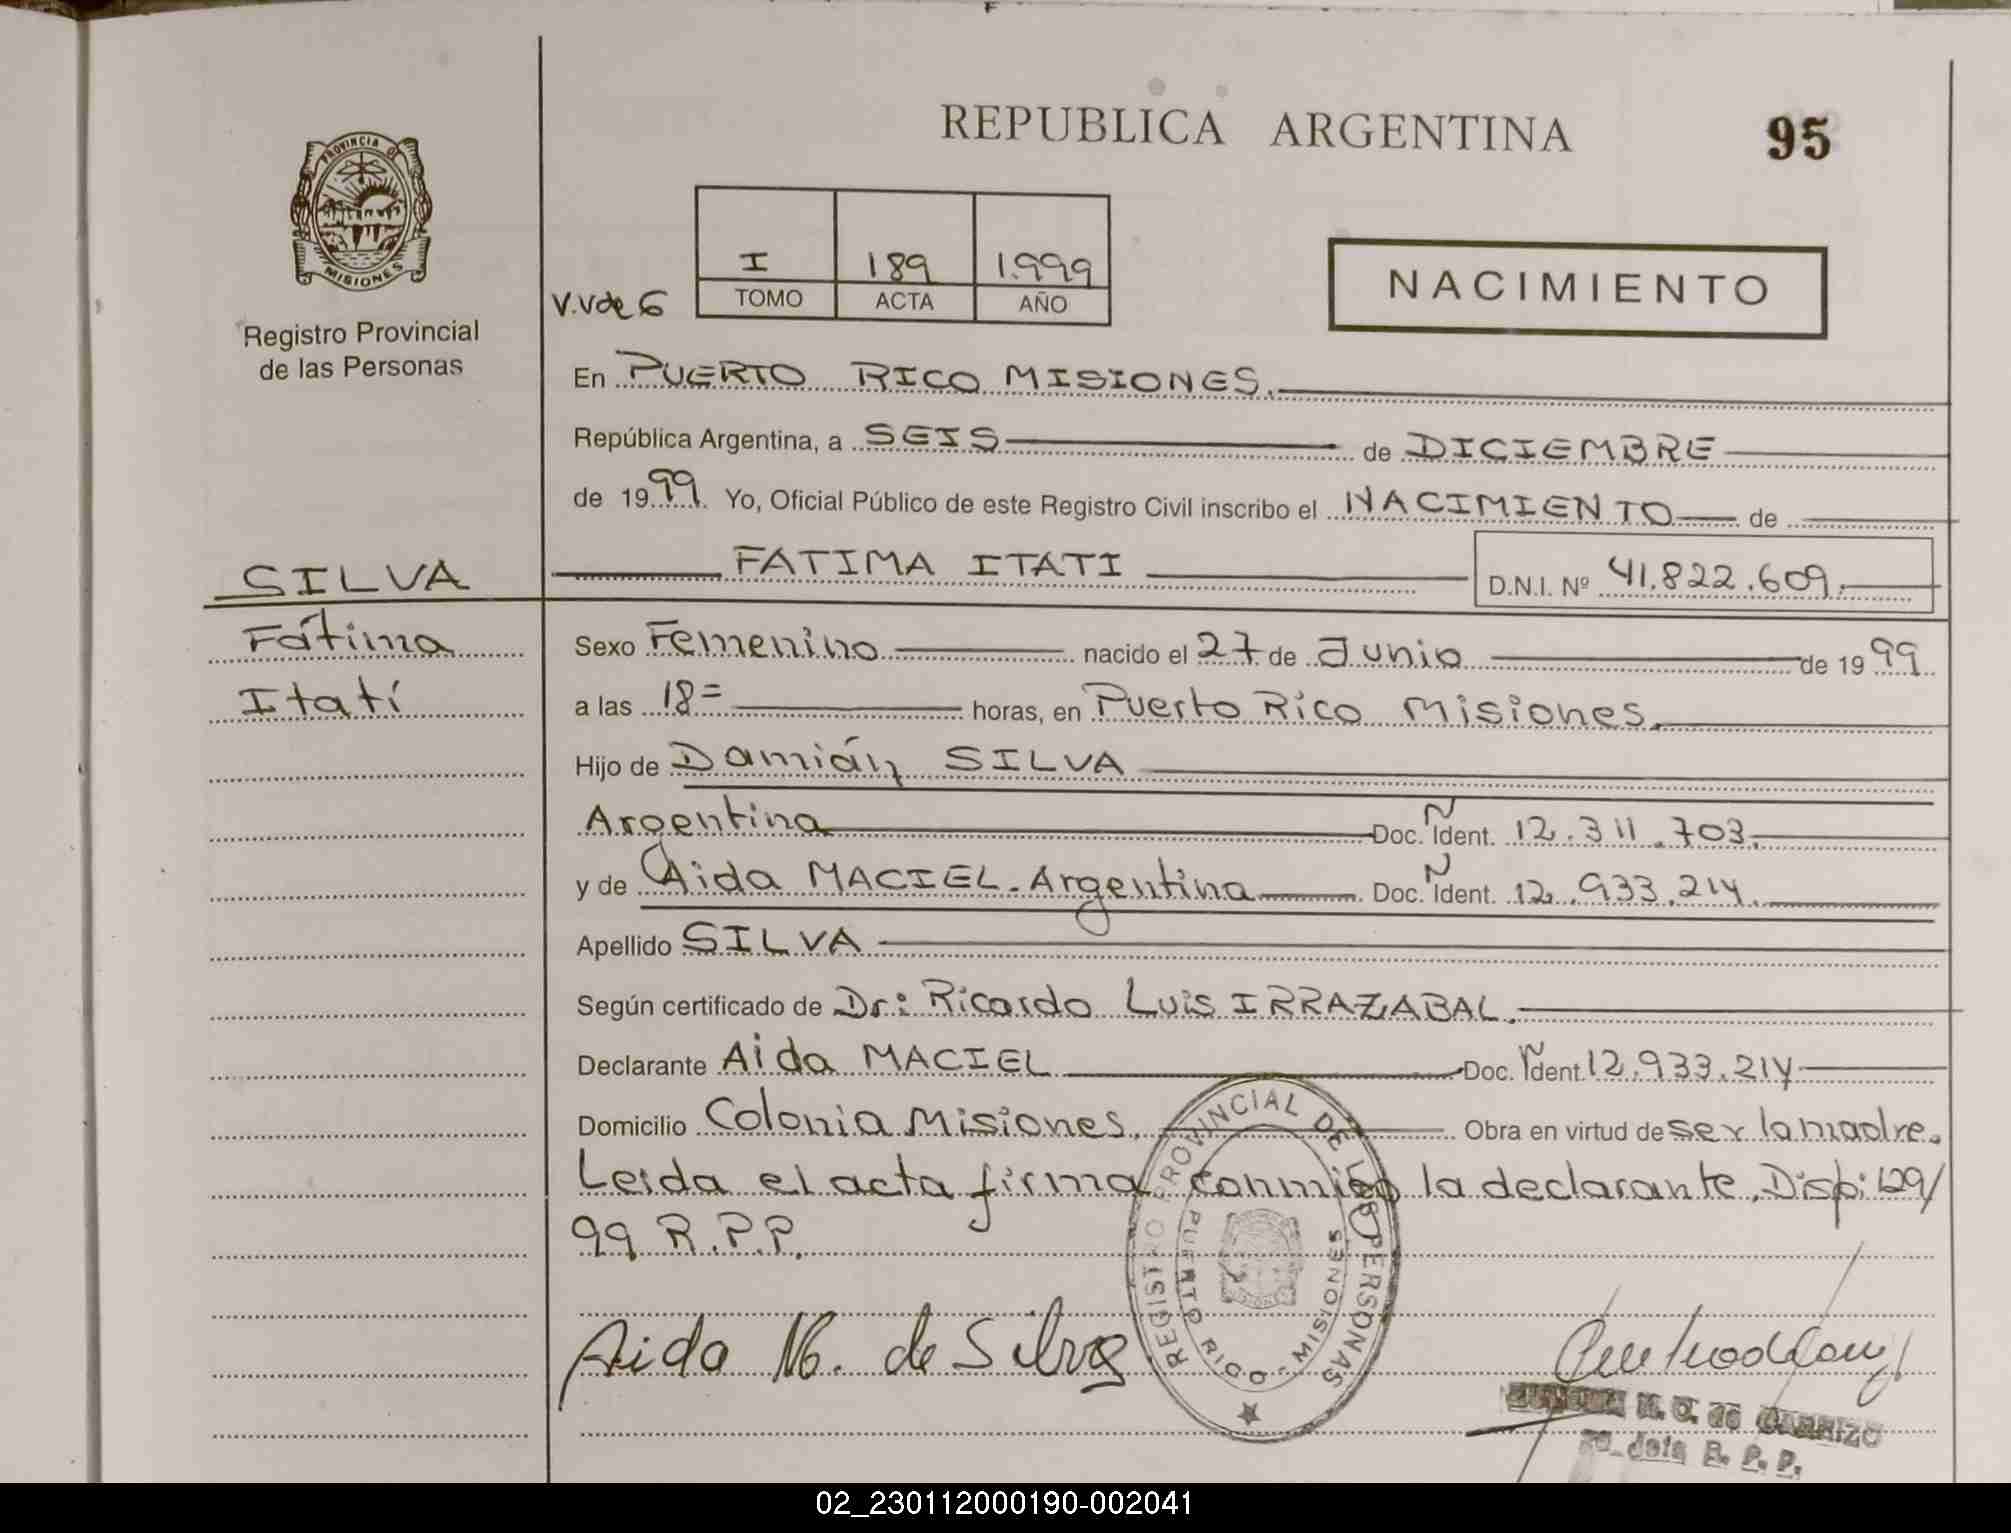 REPUBLICA ARGENTINA
95
PROVINCIA DE
MISIONES
Registro Provincial
de las Personas
V.V de 6
I 189 1.999
TOMO ACTA AÑO
NACIMIENTO
En PUERTO RICO MISIONES.
República Argentina, a SEIS de DICIEMBRE
de 1999. Yo, Oficial Público de este Registro Civil inscribo el NACIMIENTO de
SILVA
FATIMA ITATI D.N.I. Nº 41.822.609.
Fátima
Itatí
Sexo Femenino nacido el 27 de Junio de 1999
a las 18= horas, en Puerto Rico Misiones.
Hijo de Damián SILVA
Argentina Doc. Ñ Ident. 12.311.703.
y de Aida MACIEL. Argentina Doc. Ñ Ident. 12.933.214.
Apellido SILVA
Según certificado de Dr: Ricardo Luis IRRAZABAL.
Declarante Aida MACIEL Doc. Ñ Ident. 12.933.214
Domicilio Colonia Misiones. Obra en virtud de ser la madre.
Leida el acta firma conmigo la declarante. Disp: 129/
99 R.P.P.
REGISTRO PROVINCIAL DE LAS PERSONAS
PUERTO RICO - MISIONES
Aida M. de Silva
de CARRIZO
R. P. P.
02_230112000190-002041